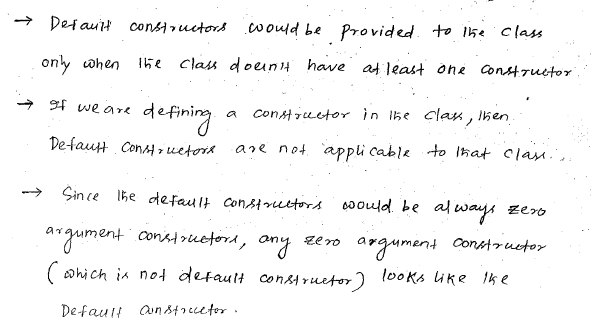 → Default constructors would be provided to the class
only when the class doesn't have at least one constructor
→ If we are defining a constructor in the class, then
Default Constructors are not applicable to that class..
→ Since the default constructors would be always zero
argument constructors, any zero argument constructor
(which is not default constructor) looks like the
Default constructor.